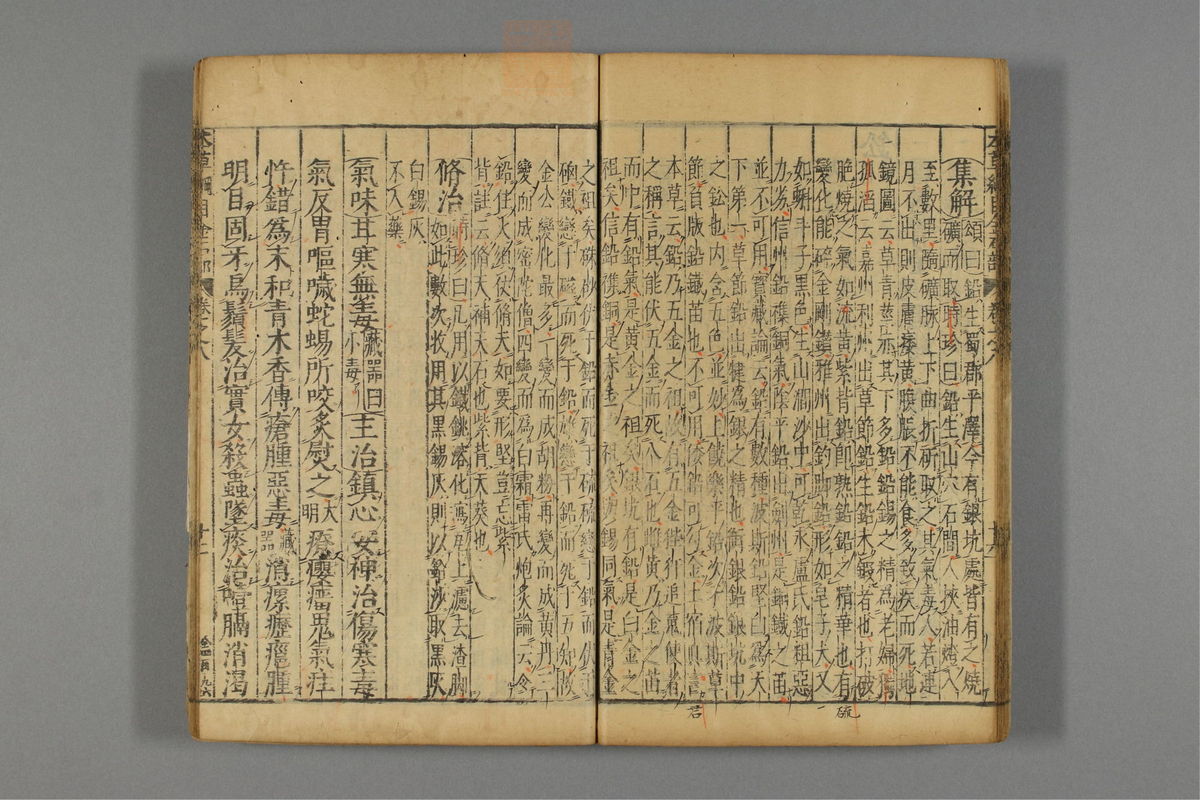 集解頌曰鉛生蜀郡平澤今有銀坑處皆有之燒
礦而取時珍曰鉛生山穴石間人挾油燈入
至數里隨礦脉上下曲折斫取之其氣毒人若連
月不出則皮膚痿黃腹脹不能食多致疾而死地
鏡圖云草青莖赤其下多鉛鉛錫之精為老婦獨
孤滔云嘉州利州出草節鉛生鉛未鍛者也打破
脆燒之氣如硫黃紫背鉛即熟鉛鉛之精華也有
變化能碎金剛鑽雅州出釣脚鉛形如皂子大又
如蝌蚪子黑色生山澗沙中可乾汞盧氏鉛粗惡
力劣信州鉛雜銅氣陰平鉛出劍州是銅鐵之苗
並不可用寶藏論云鉛有數種波斯鉛堅白為天
下第一草節鉛出犍為銀之精也銜銀鉛銀坑中
之鉛也內含五色並妙上饒樂平鉛次于波斯草
節負版鉛鐵苗也不可用倭鉛可勾金土宿真君
本草云鉛乃五金之祖故有五金狴犴追魂使者
之稱言其能伏五金而死八石也雌黃乃金之苗
而中有鉛氣是黃金之祖矣銀坑有鉛是白金之
祖矣信鉛雜銅是赤金之祖矣與錫同氣是青金
之祖矣硃砂伏于鉛而死于硫硫戀于鉛而伏于
硇鐵戀于磁而死于鉛雄戀于鉛而死于五加故
金公變化最多一變而成胡粉再變而成黃丹三
變而成密陀僧四變而為白霜雷氏炮炙論云令
鉛住火須仗脩天如要形堅豈忘紫
背註云脩天補天石也紫背天葵也
脩治時珍曰凡用以鐵銚溶化瀉瓦上濾去渣脚
如此數次收用其黑錫灰則以鉛沙取黑灰
白錫灰
不入藥
氣味甘寒無毒藏器曰小毒主治鎮心安神治傷寒毒
氣反胃嘔噦蛇蜴所咬炙熨之大明療癭瘤鬼氣疰
忤錯為末和青木香傅瘡腫惡毒藏器消瘰癧癰腫
明目固牙烏鬚髮治實女殺蟲墜痰治噎膈消渴
本草綱目金石部
卷之八
君
硫